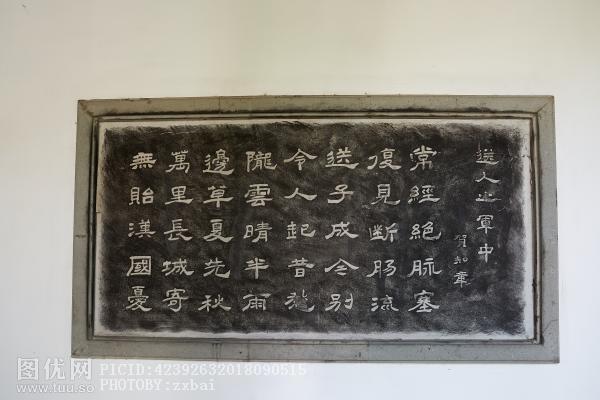 送人之軍中
賀知章
常經絕脉塞
復見斷腸流
送子成今別
令人起昔愁
隴雲晴半雨
邊草夏先秋
萬里長城寄
無貽漢國憂
图优网
www.tuu.so
PICID:42392632018090515
PHOTOBY:zxbai